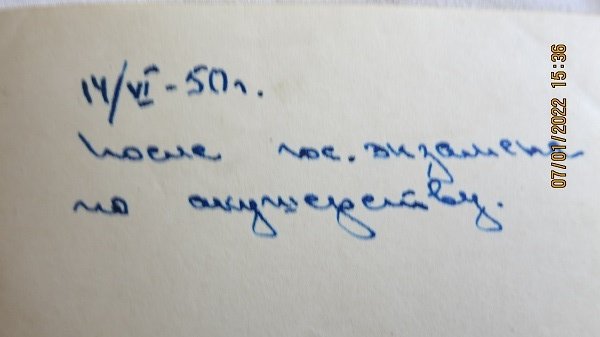 14/VI - 50 г.
После гос. экзамена
по акушерству.
07/01/2022 15:36